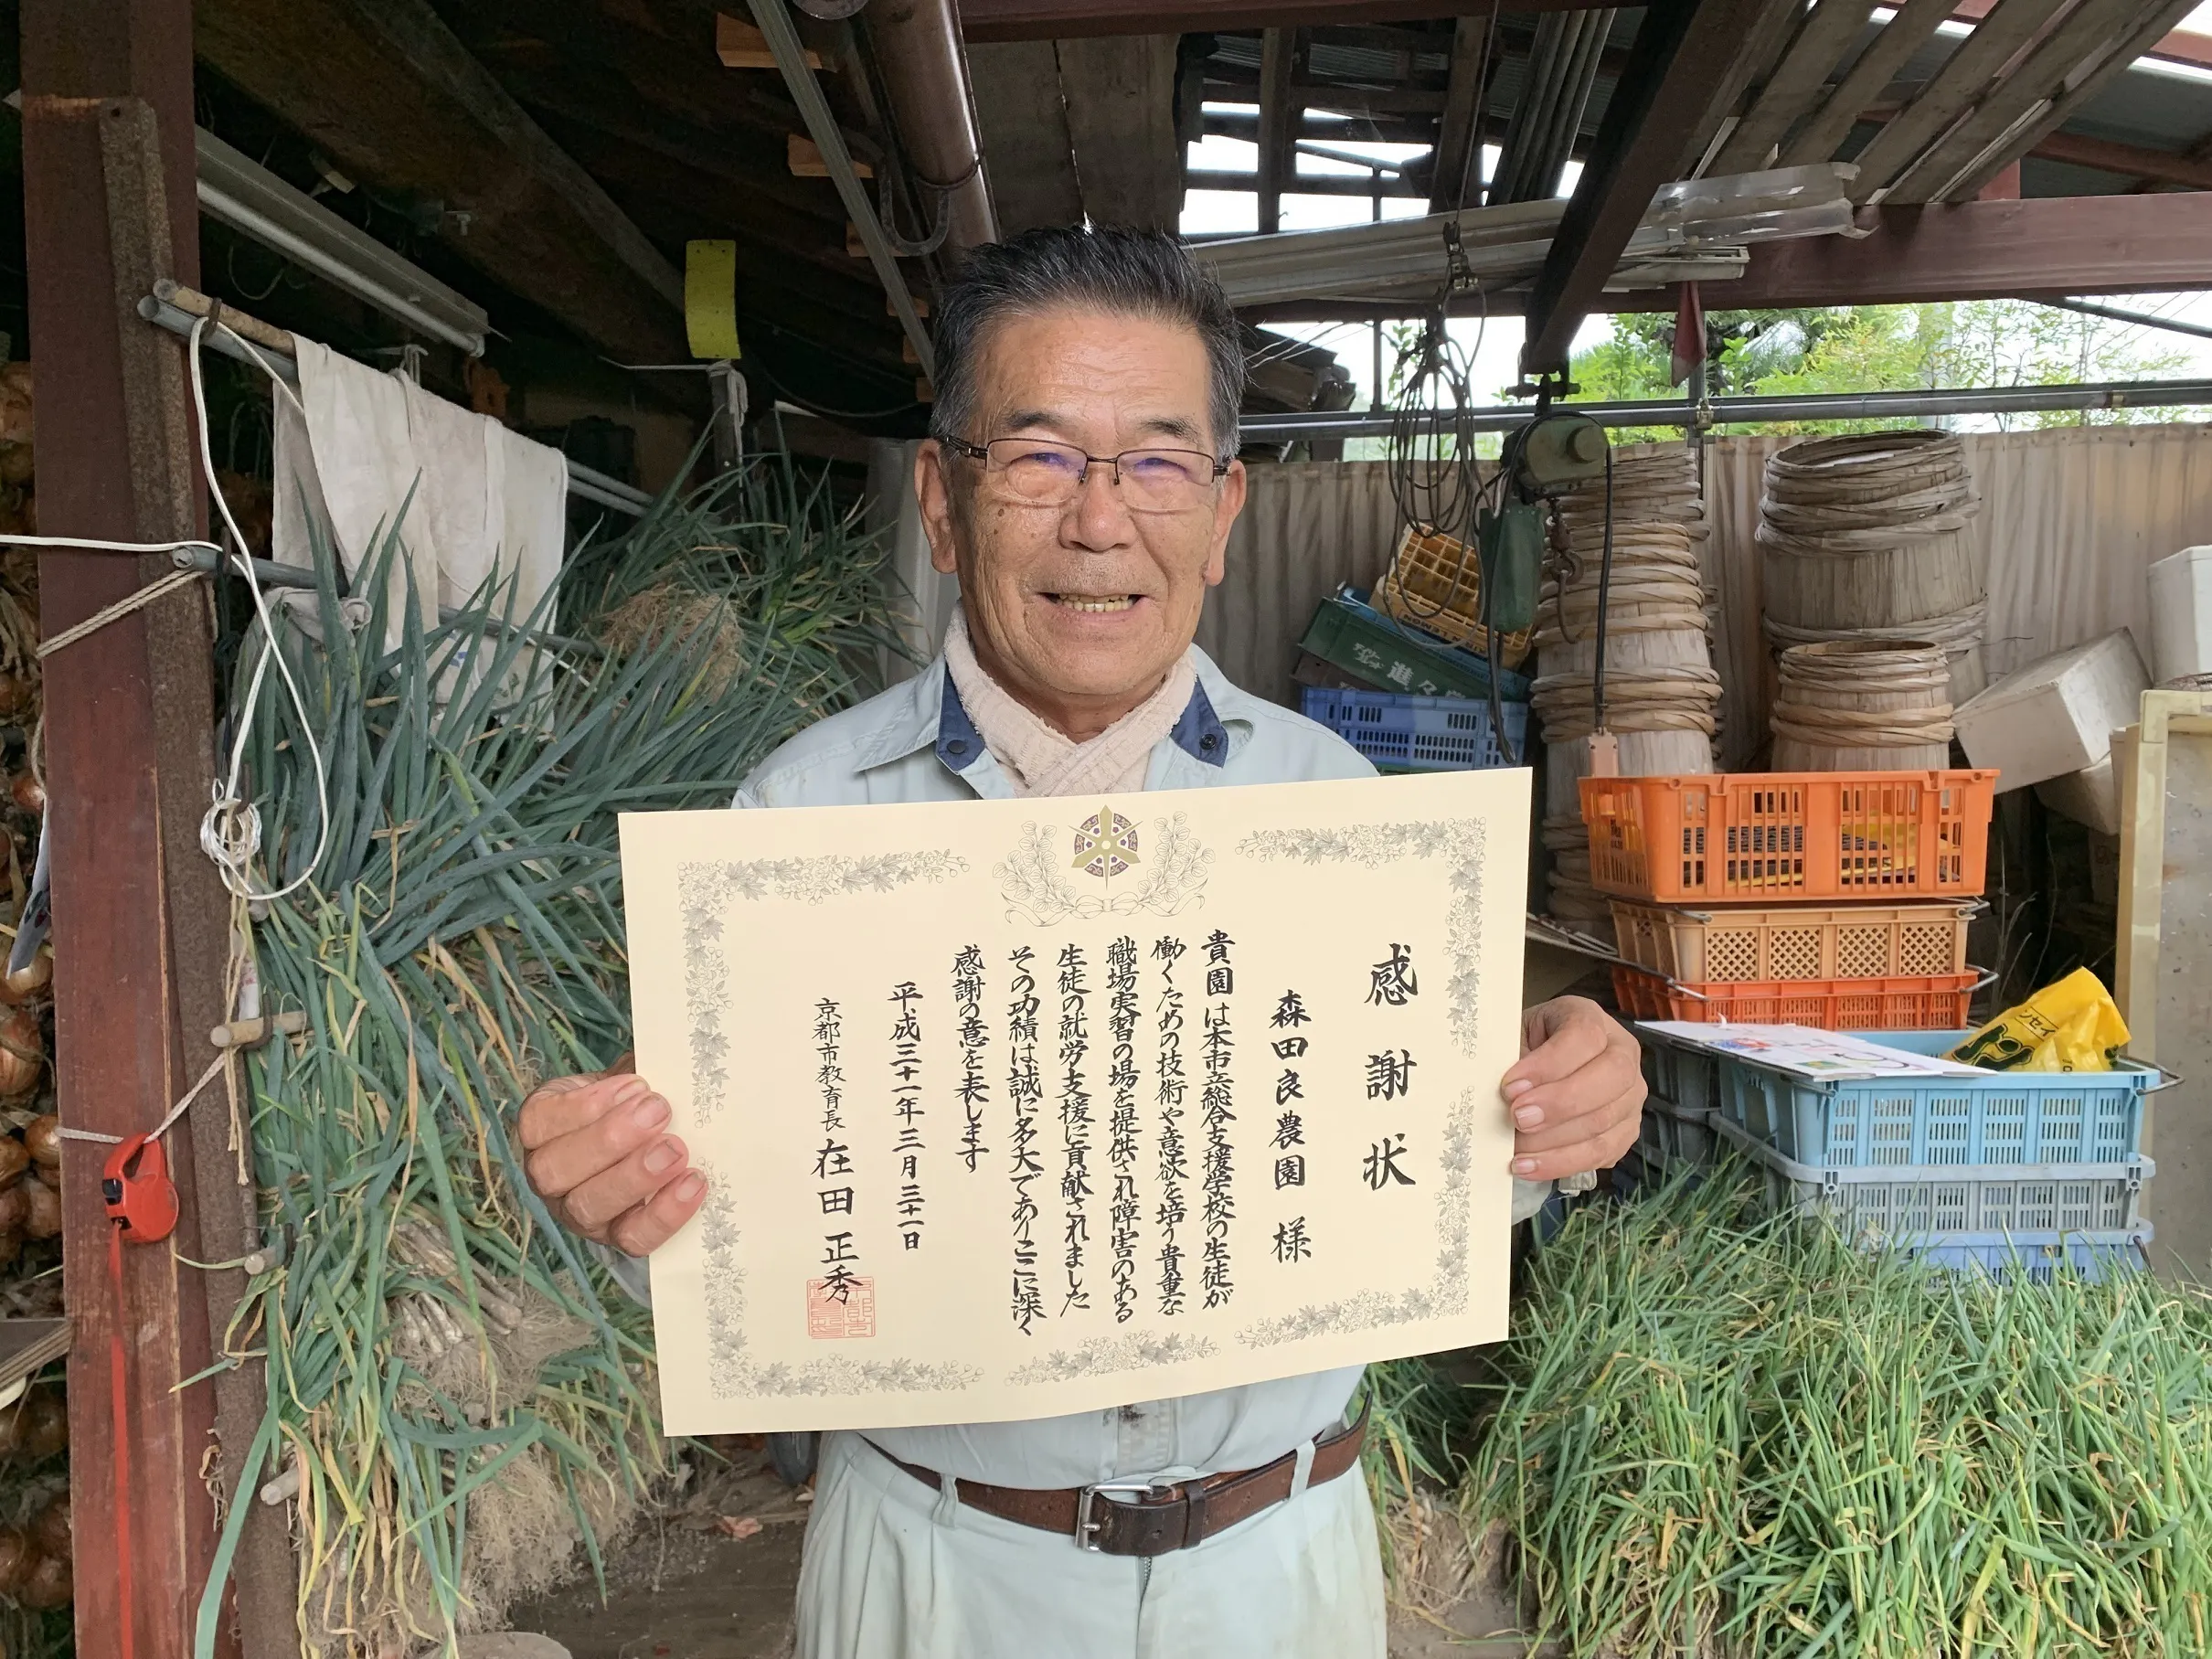 感謝状
森田良農園 様
貴園は本市立総合支援学校の生徒が
働くための技術や意欲を培う貴重な
職場実習の場を提供され障害のある
生徒の就労支援に貢献されました
その功績は誠に多大でありここに深く
感謝の意を表します
平成三十一年三月三十一日
京都市教育長 在田正秀
進々堂